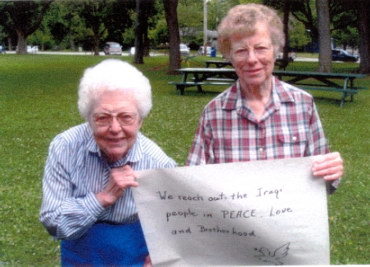 We reach out the Iraqi
people in PEACE, Love
and Brotherhood